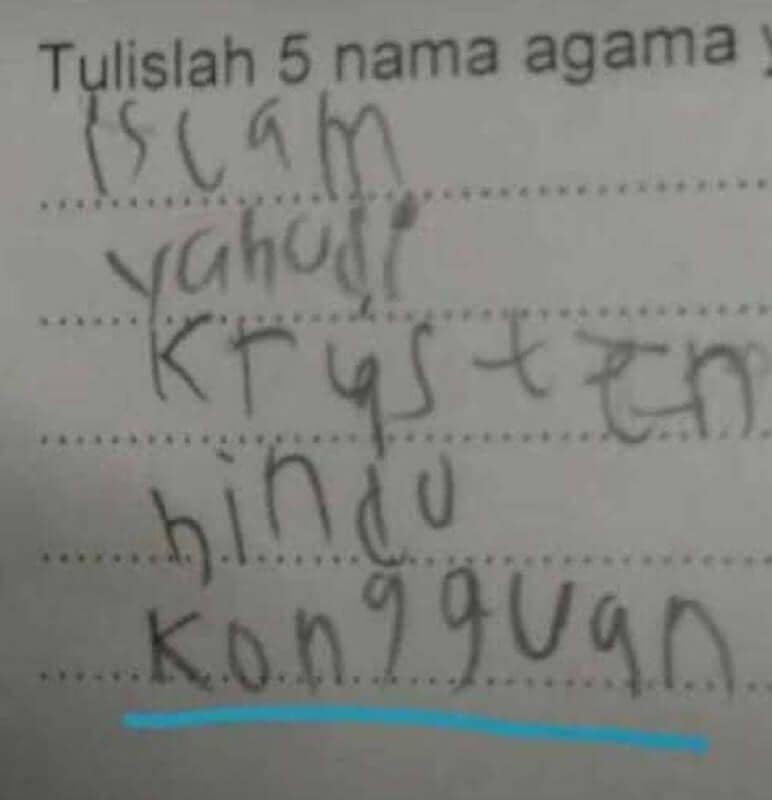 Tulislah 5 nama agama
islam
yahudi
Krysten
hindu
Kongguan